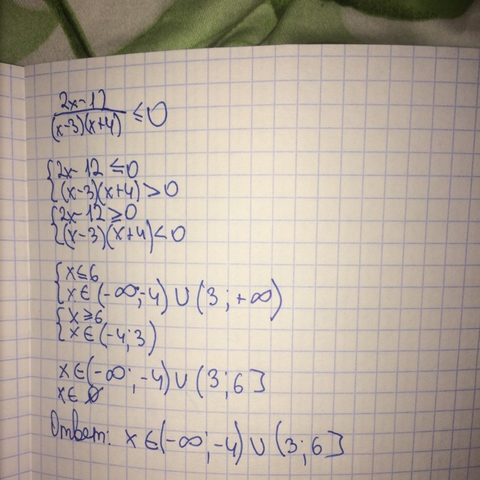 2x-12
(x-3)(x+4) ≤0
{2x-12≤0
{(x-3)(x+4)>0
{2x-12≥0
{(x-3)(x+4)<0
{x≤6
{x∈(-∞;-4)∪(3;+∞)
{x≥6
{x∈(-4;3)
x∈(-∞;-4)∪(3;6]
x∈∅
Ответ: x∈(-∞;-4)∪(3;6]